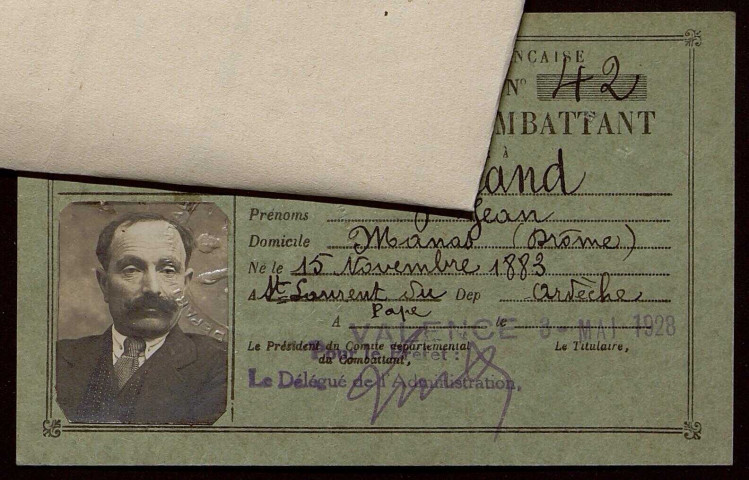 Nº 42
MBATTANT
À
and
Prénoms Jean
Domicile Manas (Drôme)
Né le 15 Novembre 1883
A St Laurent du Pape Dep Ardèche
A VALENCE le 8 - MAI 1928
Le Président du Comité départemental du Combattant,
Le Titulaire,
Pour le Préfet :
Le Délégué de l'Administration,